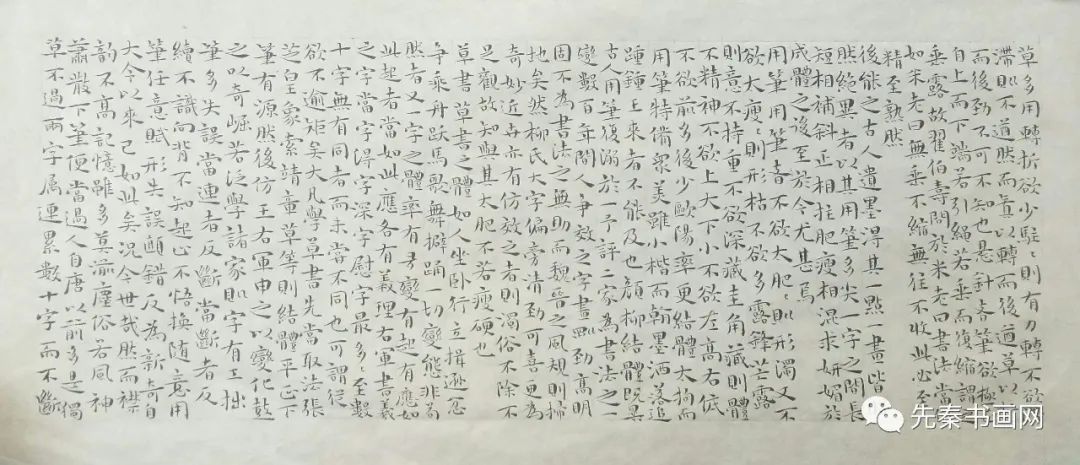 草多用轉折欲少駐〻則有力轉不欲
滯〻則不遒然而真以轉而後遒草以折
而後勁不可不知也懸針者筆欲極正
自上而下端若引繩若垂而復縮謂之
垂露故翟伯壽問於米老曰書法當
如米老曰無垂不縮無往不收此必至
精至熟然
後能之古人遺墨得其一點一畫皆
然絕異者以其用筆多尖一字之間長
短相補斜正相拄肥瘦相混求妍媚於
成體之後至於今尤甚焉
用筆用筆不欲太肥〻則形濁又不
欲太瘦〻則形枯不欲多露鋒芒露
則意不持重不欲深藏圭角藏則體
不精神不欲上大下小不欲左高右低
不欲前多後少歐陽率更結體太拘而
用筆特備眾美雖小楷而翰墨洒落追
踵鍾王來者不能及也顏柳結體既異
古人用筆復溺於一予評二家為書法之一
變數百年間人爭效之字畫剛勁高明
固不為書法之無助而魏晉之風規則掃
地矣然柳氏大字偏旁清勁可喜更為
奇妙近世亦有仿效之者則濁俗不除不
足觀故知與其太肥不若瘦硬也
草書草書之體如人坐卧行立揖遜忿
爭乘舟躍馬歌舞擗踊一切變態非苟
然者又一字之體率有多變有起有應如
此起者當如此應各有義理右軍書羲
之字當字得字深字慰字最多〻至數
十字無有同者而未嘗不同也可謂從
欲不逾矩矣大凡學草書先當取法張
芝皇象索靖章草等則結體平正下
筆有源然後仿王右軍申之以變化鼓
之以奇崛若泛學諸家則字有工拙
筆多失誤當連者反斷當斷者反
續不識向背不知起止不悟換隨意用
筆任意賦形失誤顛錯反為新奇自
大令以來已如此矣況今世哉然而襟
韻不高記憶雖多莫湔塵俗若風神
蕭散下筆便當過人自唐以前多是獨
草不過兩字屬連累數十字而不斷
先秦书画网